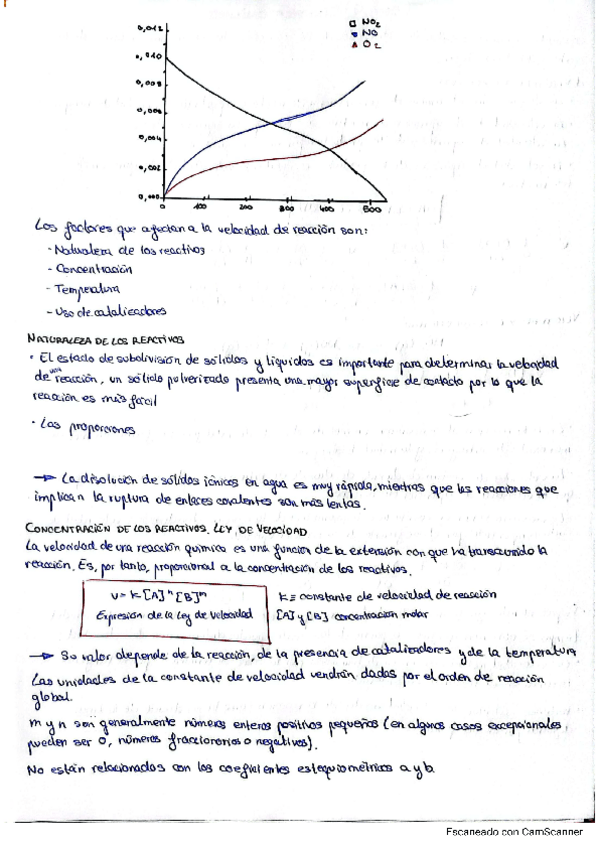 0,012
0,010
0,008
0,006
0,004
0,002
0,000
0 100 200 300 400 500
NO2
NO
O2
Los factores que afectan a la velocidad de reacción son:
- Naturaleza de los reactivos
- Concentración
- Temperatura
- Uso de catalizadores
NATURALEZA DE LOS REACTIVOS
· El estado de subdivisión de sólidos y líquidos es importante para determinar la velocidad
de una reacción, un sólido pulverizado presenta una mayor superficie de contacto por lo que la
reacción es más fácil
· Las proporciones
→ La disolución de sólidos iónicos en agua es muy rápida, mientras que las reacciones que
implican la ruptura de enlaces covalentes son más lentas.
CONCENTRACIÓN DE LOS REACTIVOS. LEY DE VELOCIDAD
La velocidad de una reacción química es una función de la extensión con que ha transcurrido la
reacción. Es, por tanto, proporcional a la concentración de los reactivos.
v = k [A]ⁿ [B]ᵐ
Expresión de la Ley de Velocidad
k ≡ constante de velocidad de reacción
[A] y [B] concentración molar
→ Su valor depende de la reacción, de la presencia de catalizadores y de la temperatura
Las unidades de la constante de velocidad vendrán dadas por el orden de reacción
global.
m y n son generalmente números enteros positivos pequeños (en algunos casos excepcionales
pueden ser 0, números fraccionarios o negativos).
No están relacionados con los coeficientes estequiométricos a y b.
Escaneado con CamScanner